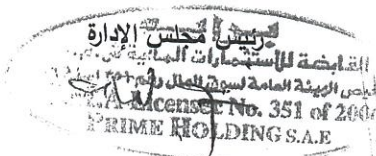 رئيس مجلس الإدارة
القابضة للاستثمارات المالية
الهيئة العامة لسوق المال رقم
Licensee No. 351 of 200
PRIME HOLDING S.A.E